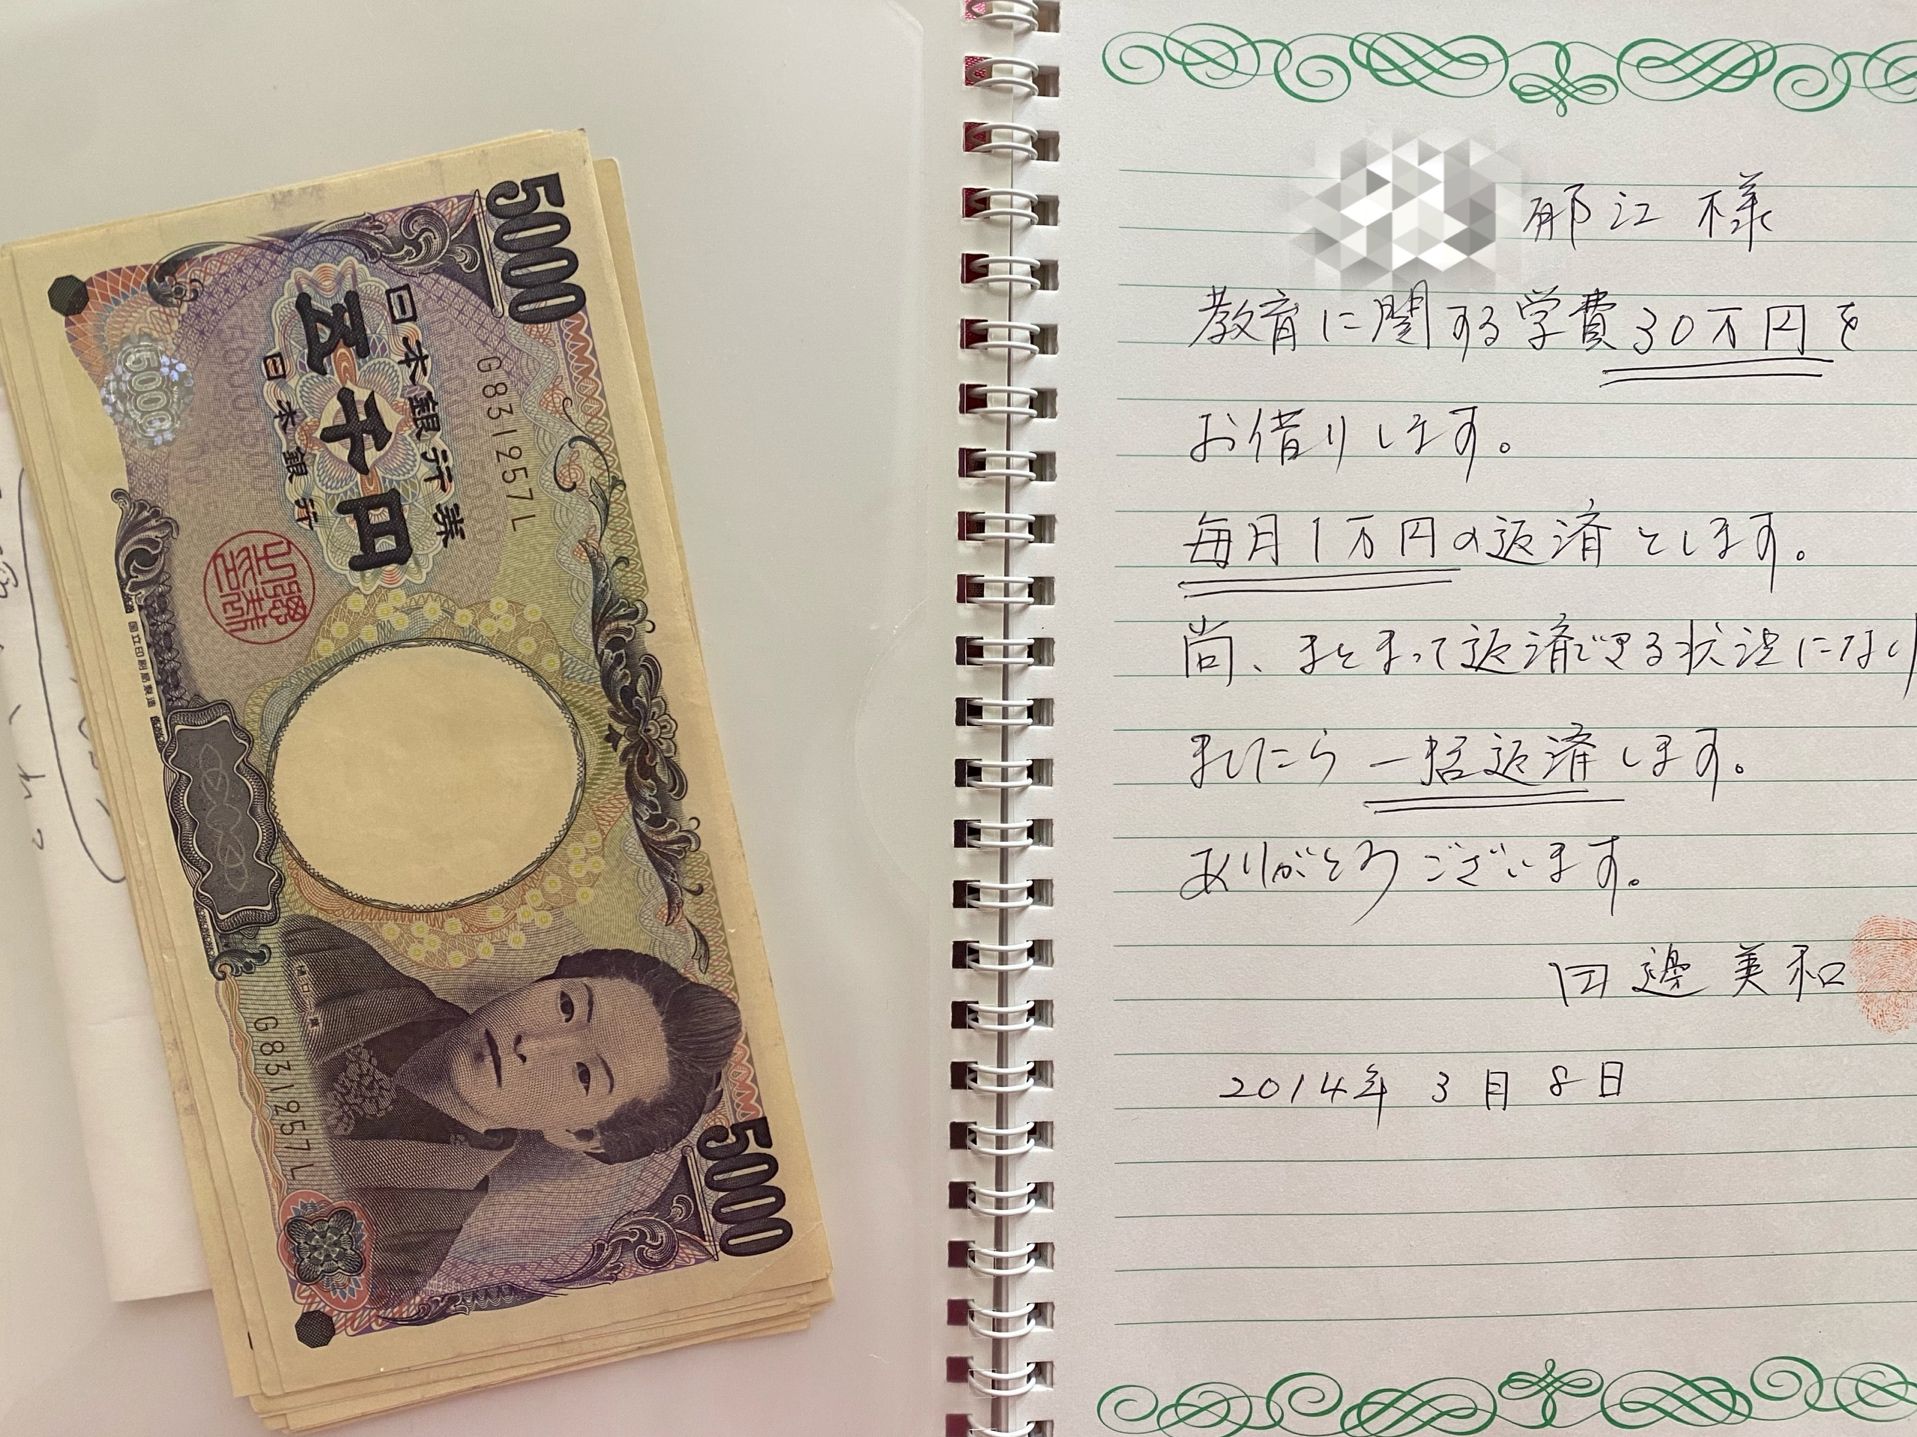 5000
日本銀行券
五千円
日本銀行
G831957L
5000
国立印刷局製造
樋口一葉
G831957L
5000
郁江様
教育に関する学費30万円を
お借りします。
毎月1万円の返済とします。
尚、まとまって返済できる状況になり
ましたら一括返済します。
ありがとうございます。
田邊美和
2014年3月8日